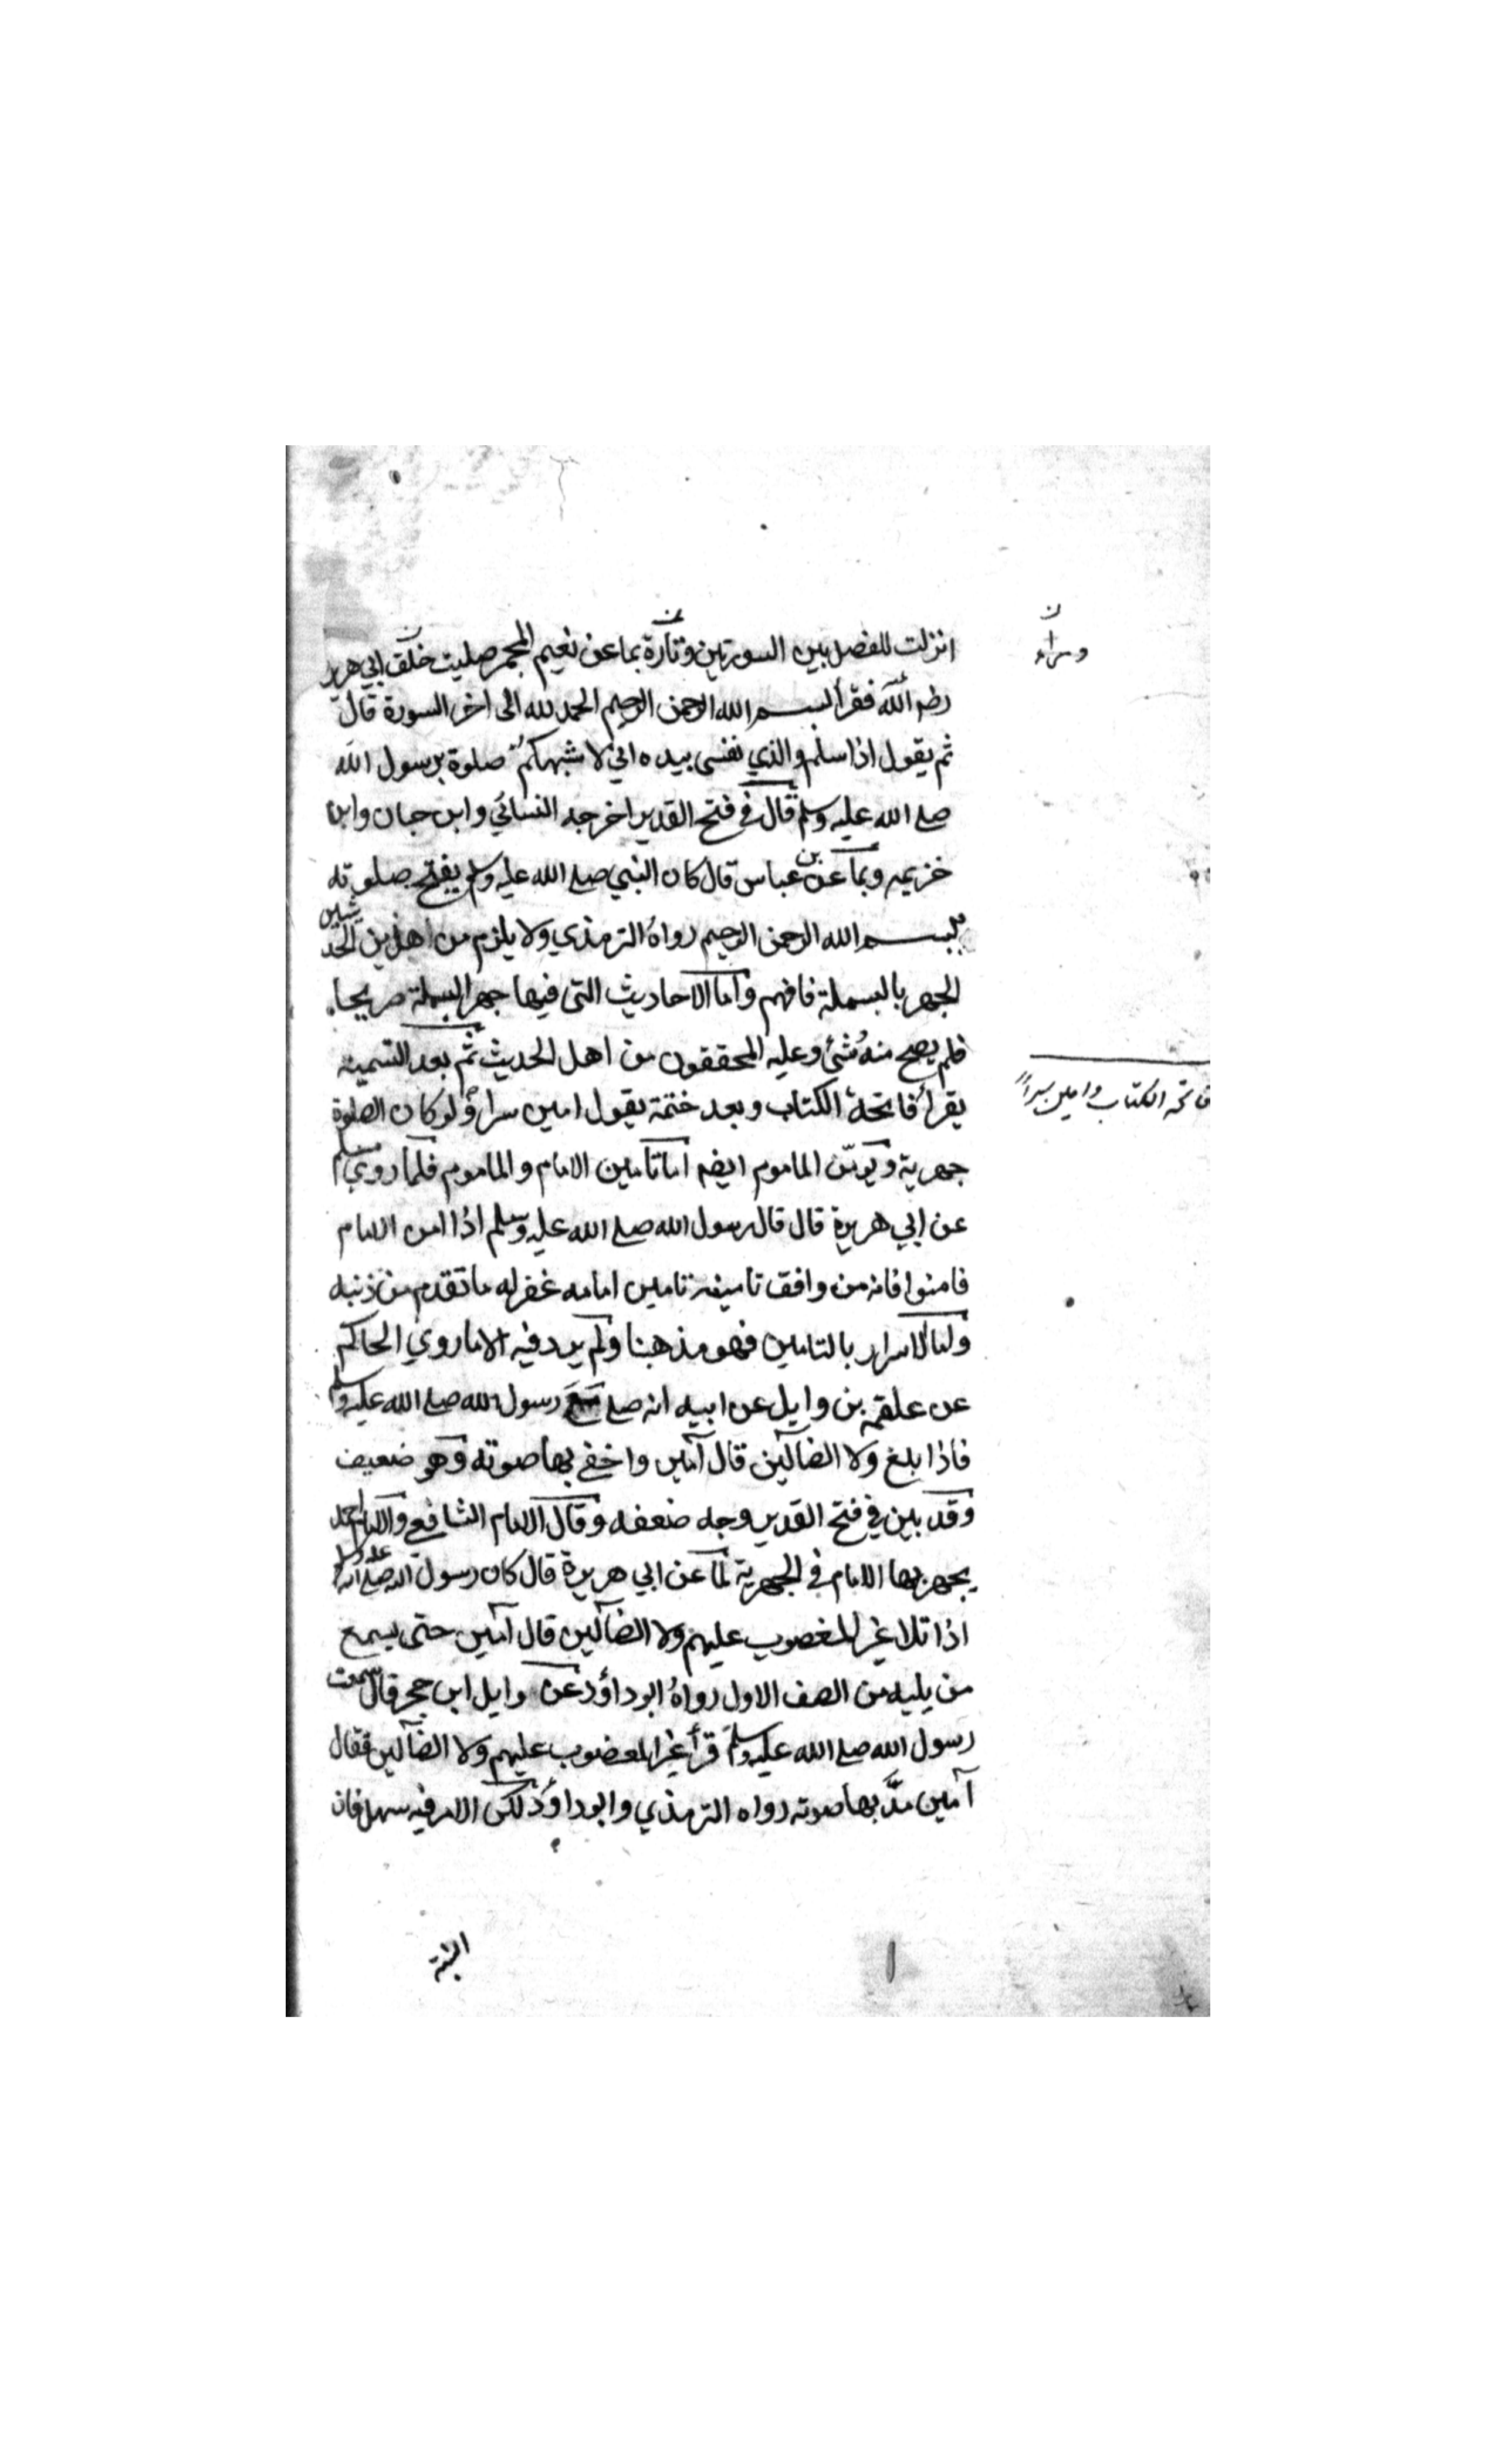 انزلت للفصل بين السورتين وتارة بما عن نعيم المجمر صليت خلف ابي هرير
رضه الله فقرأ بسم الله الرحمن الرحيم الحمد لله الى اخر السورة قال
ثم يقول اذا سلم والذي نفسى بيده اني لاشبهكم صلوة برسول الله
صلع الله عليه وسلم قال في فتح القدير اخرجه النسائي وابن حبان وابن
خزيمه وبما عن بن عباس قال كان النبي صلع الله عليه وسلم يفتح صلوته
ببسم الله الرحمن الرحيم رواه الترمذي ولا يلزم من اهذين الحديثين
الجهر بالبسملة فافهم واما الاحاديث التى فيها جهر البسملة صريحا
فلم يصح منه شئ وعليه المحققون من اهل الحديث ثم بعد التسمية
يقرأ فاتحة الكتاب وبعد ختمة يقول امين سرا ولو كان الصلوة
جهرية ويؤمن الماموم ايضه اما تامين الامام والماموم فلما روي مسلم
عن ابي هريرة قال قال رسول الله صلع الله عليه وسلم اذا امن الامام
فامنوا فانه من وافق تامينه تامين امامه غفر له ما تقدم من ذنبه
واما الاسرار بالتامين فهو مذهبنا ولم يرد فيه الا ما روي الحاكم
عن علقمه بن وايل عن ابيه انه صلع مع رسول الله صلع الله عليه وسلم
فاذا بلغ ولا الضالين قال آمين واخفى بها صوته وهو ضعيف
وقد بين في فتح القدير وجه ضعفه وقال الامام الشافعي والامام احمد
يجهر بها الامام في الجهرية لما عن ابي هريرة قال كان رسول الله صلع الله عليه وسلم
اذا تلا غير المغضوب عليهم ولا الضالين قال آمين حتى يسمع
من يليه من الصف الاول رواه ابو داؤد عن وايل ابن حجر قال سمعت
رسول الله صلع الله عليه وسلم قرأ غير المغضوب عليهم ولا الضالين فقال
آمين مدّ بها صوته رواه الترمذي وابو داؤد لكن الامر فيه سهل فان
السنة
ن
وسراء
فاتحة الكتاب وامين سراً